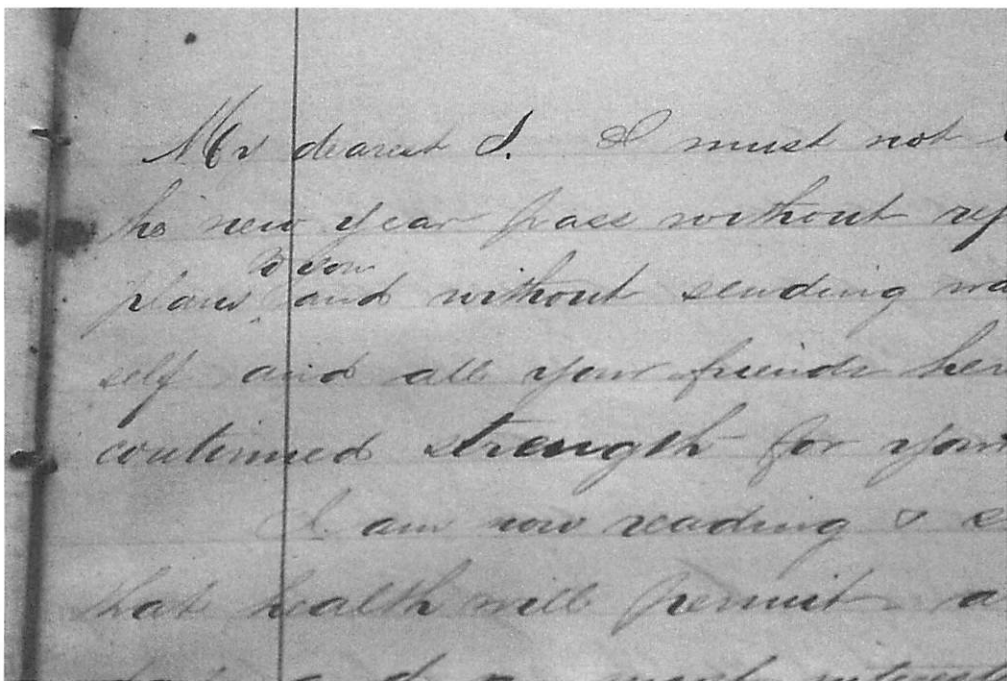 My dearest S. I must not
the new year pass without
to you
plans and without sending
self and all your friends
continued strength for your
I am now reading &
that health will permit
most